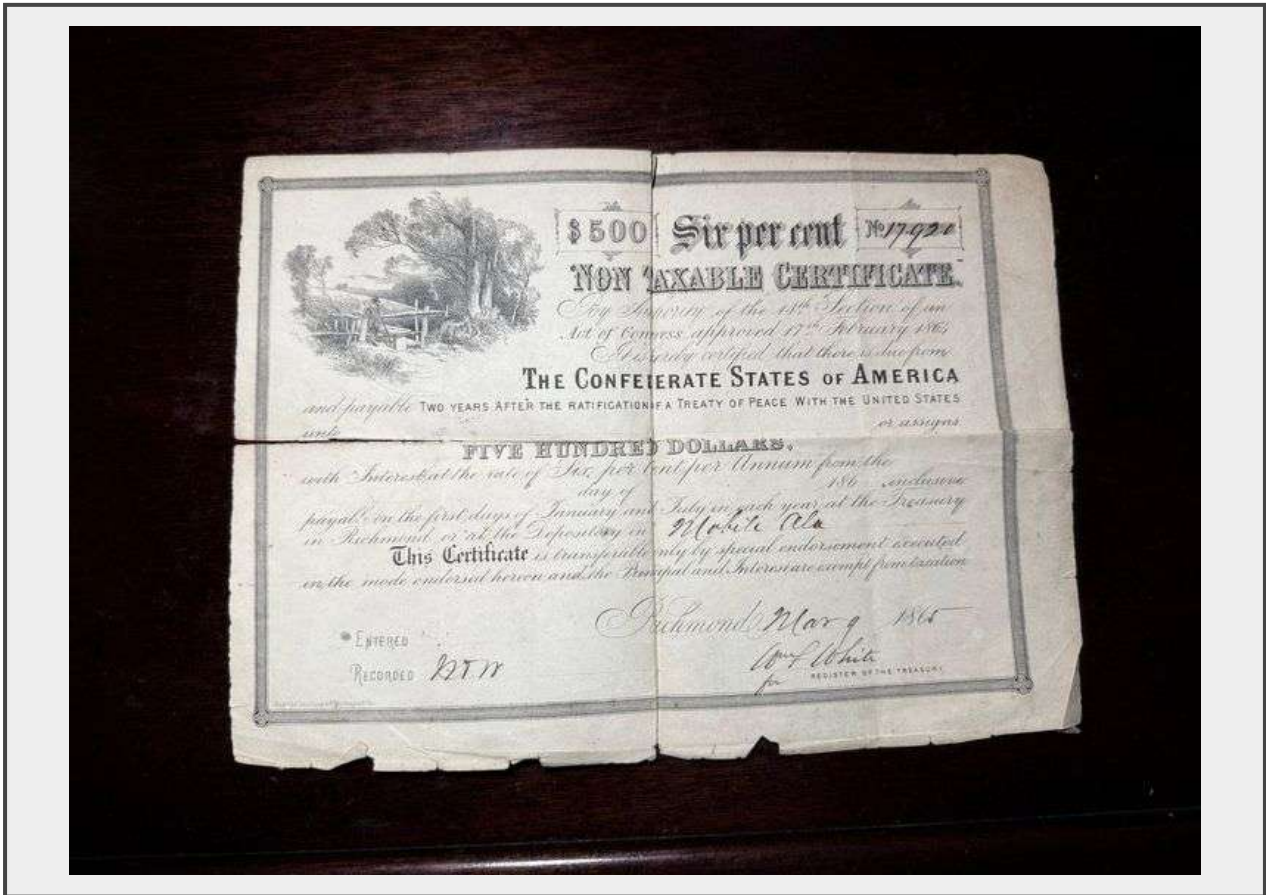 $500 Six per cent No 17920
NON TAXABLE CERTIFICATE.
By Authority of the 14th Section of an
Act of Congress approved 17th February 1864
It is hereby certified that there is due from
THE CONFEDERATE STATES OF AMERICA
and payable TWO YEARS AFTER THE RATIFICATION OF A TREATY OF PEACE WITH THE UNITED STATES
unto or assigns
FIVE HUNDRED DOLLARS,
with Interest at the rate of Six per Cent per Annum from the
day of 186 inclusive
payable on the first days of January and July in each year at the Treasury
in Richmond or at the Depository in Mobile Ala
This Certificate is transferable only by special endorsement executed
in the mode endorsed hereon and the Principal and Interest are exempt from taxation
Richmond, Mar 9 1865
ENTERED
RECORDED
White
for REGISTER OF THE TREASURY